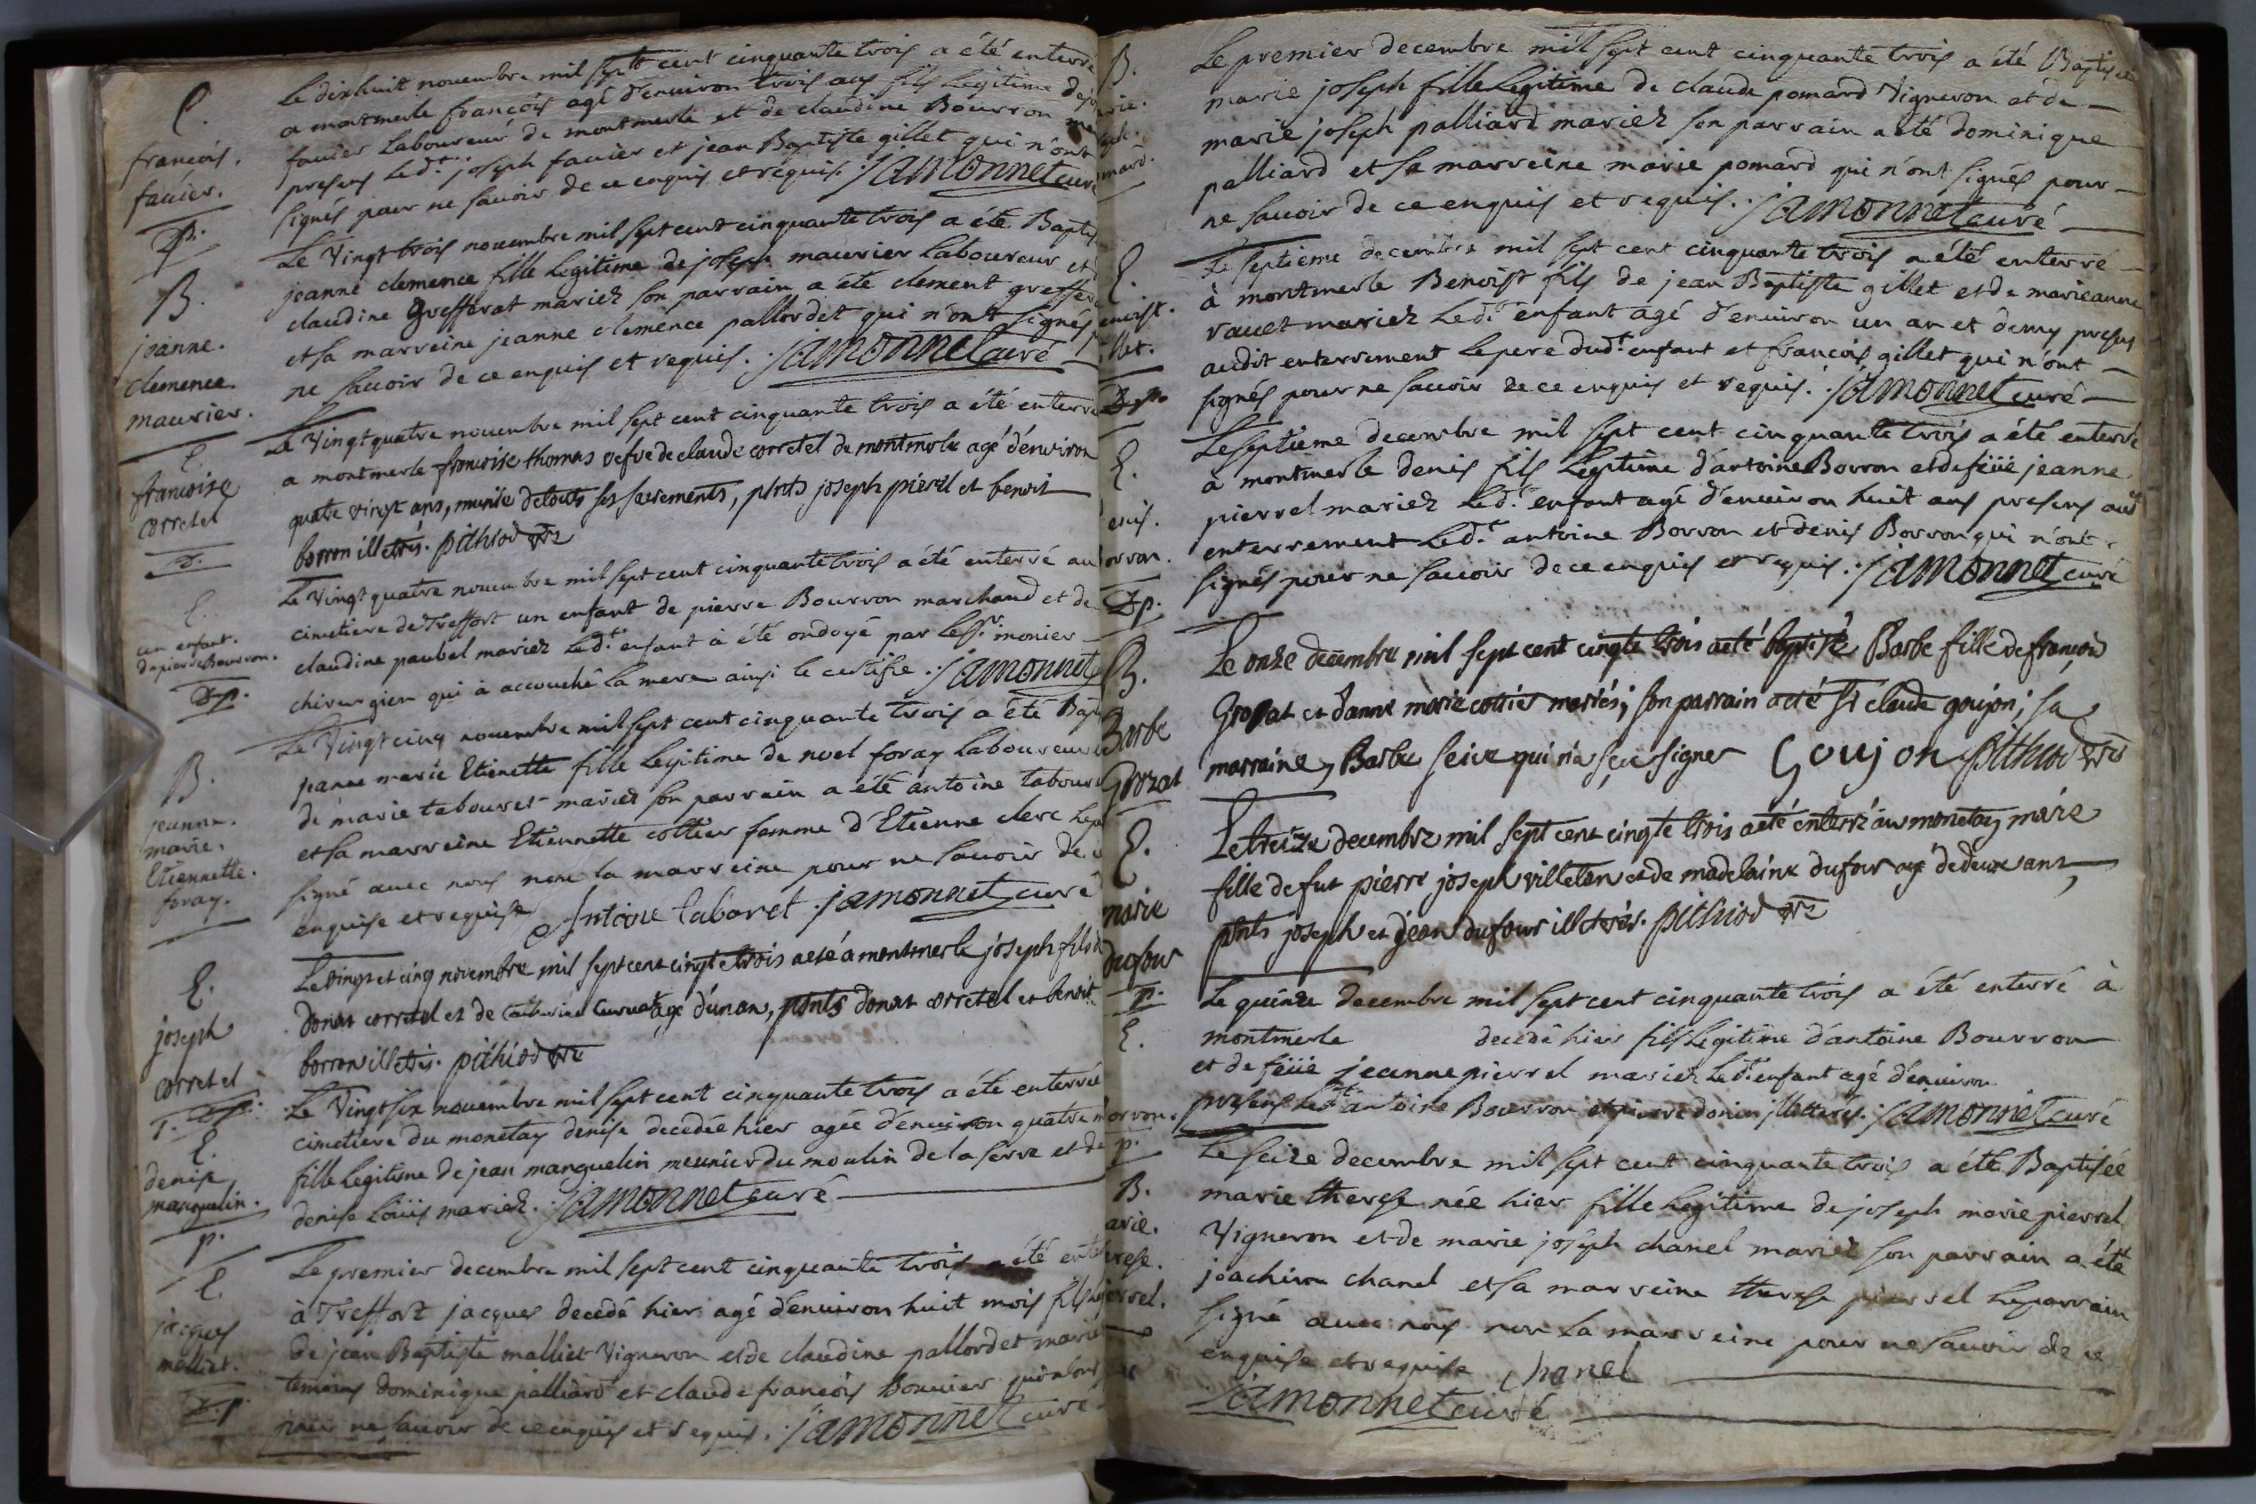 E.
françois.
favier.
p.
Le dixhuit novembre mil sept cent cinquante trois a été enterré
a montmerle françois agé d'environ trois ans fils legitime de
favier Laboureur de montmerle et de claudine Bourron
presens led.t joseph favier et jean Baptiste gillet qui n'ont
signés pour ne savoir de ce enquis et requis. jamonnet curé
B.
jeanne.
clemence
maurier.
Le Vingt trois novembre mil sept cent cinquante trois a été
jeanne clemence fille legitime de joseph maurier Laboureur et
claudine grefferat mariez son parrain a été clement
et sa marreine jeanne clemence pallordet qui n'ont signés
ne savoir de ce enquis et requis. jamonnet curé
E.
francoise
corretel
Le Vingt quatre novembre mil sept cent cinquante trois a été enterré
a montmerle francoise thomas vefve de claude corretel de montmerle agé d'environ
quatre vingt ans, munie de touts ses sacrements, pnts joseph pierrel et benoit
borron illetrés. pithiod vre
E.
un enfant.
de pierre Bourron.
Dp.
Le Vingt quatre novembre mil sept cent cinquante trois a été enterré au
cimetiere de Treffort un enfant de pierre Bourron marchand et de
claudine paubel mariez led.t enfant à été ondoyé par le Sr. monier
chirurgien qui à accouché la mere ainsi le certifie. jamonnet
B.
jeanne.
marie.
Etiennette.
foray.
Le Vingt cinq novembre mil sept cent cinquante trois a été
jeanne marie Etienette fille legitime de noel foray laboureur
de marie tabouret mariez son parrain a été antoine
et sa marreine Etiennette cottier femme d'Etienne clerc
signé avec nous non la marreine pour ne savoir de
enquise et requise Antoine taboret jamonnet curé
E.
joseph
corretel
Le vingt et cinq novembre mil sept cent cinqte trois a eté à montmerle joseph fils
donat corretel et de Catherine agé d'un an, pnts donat corretel et benoit
borron illetrés. pithiod vre
E.
denise
manguelin.
p.
Le Vingt six novembre mil sept cent cinquante trois a été enterrée
cimetiere du monetay denise decedée hier agée d'environ quatre
fille legitime de jean manguelin meunier du moulin de la serve et de
denise Loüis mariez. jamonnet curé
E.
jacques
malliet.
Dp.
Le premier decembre mil sept cent cinquante trois a été
à Treffort jacques decedé hier agé d'environ huit mois fils
de jean Baptiste malliet Vigneron et de claudine pallordet
temoins dominique palliard et claude françois Bouvier
pour ne savoir de ce enquis et requis. jamonnet curé
B.
Le premier decembre mil sept cent cinquante trois a été Baptisée
marie joseph fille Legitime de claude pomard Vigneron et de
marie joseph palliard mariez son parrain a été dominique
palliard et sa marreine marie pomard qui n'ont signés pour
ne savoir de ce enquis et requis. jamonnet curé
E.
Le septieme decembre mil sept cent cinquante trois a été enterré
à montmerle Benoist fils de jean Baptiste gillet et de marieanne
ravet mariez led.t enfant agé d'environ un an et demy presens
audit enterrement le pere dud.t enfant et françois gillet qui n'ont
signés pour ne savoir de ce enquis et requis. jamonnet curé
E.
Le septieme decembre mil sept cent cinquante trois a été enterré
à montmerle denis fils legitime d'antoine Borron et de feüe jeanne
pierrel mariez led.t enfant agé d'environ huit ans presens aud
enterrement led.t antoine Borron et denis Borron qui n'ont
signés pour ne savoir de ce enquis et requis. jamonnet curé
Dp.
B.
Barbe
Grozat
Le onze decembre mil sept cent cinqte trois a eté baptisée Barbe fille de françois
Grosat et d'anne marie cottier mariés; son parrain a eté Sr claude goujon; sa
marraine, Barbe seive qui n'a sçu signer Goujon pithiod vre
E.
marie
dufour
p.
Le treize decembre mil sept cent cinqte trois a eté enterré au monetay marie
fille de fut pierre joseph villeten et de madelaine dufour agé de deux ans,
pnts joseph et jean dufour illetrés. pithiod vre
E.
Le quinze decembre mil sept cent cinquante trois a été enterré à
montmerle decedé hier fils legitime d'antoine Bourron
et de feüe jeanne pierrel mariez led.t enfant agé d'environ
presens led.t antoine Bourron et pierre donier illetterés. jamonnet curé
p.
B.
Le seize decembre mil sept cent cinquante trois a été Baptisée
marie therese née hier fille legitime de joseph marie pierrel
Vigneron et de marie joseph chanel mariez son parrain a été
joachim chanel et sa marreine therese pierrel le parrain
signé avec nous non la marreine pour ne savoir de ce
enquise et requise chanel
jamonnet curé